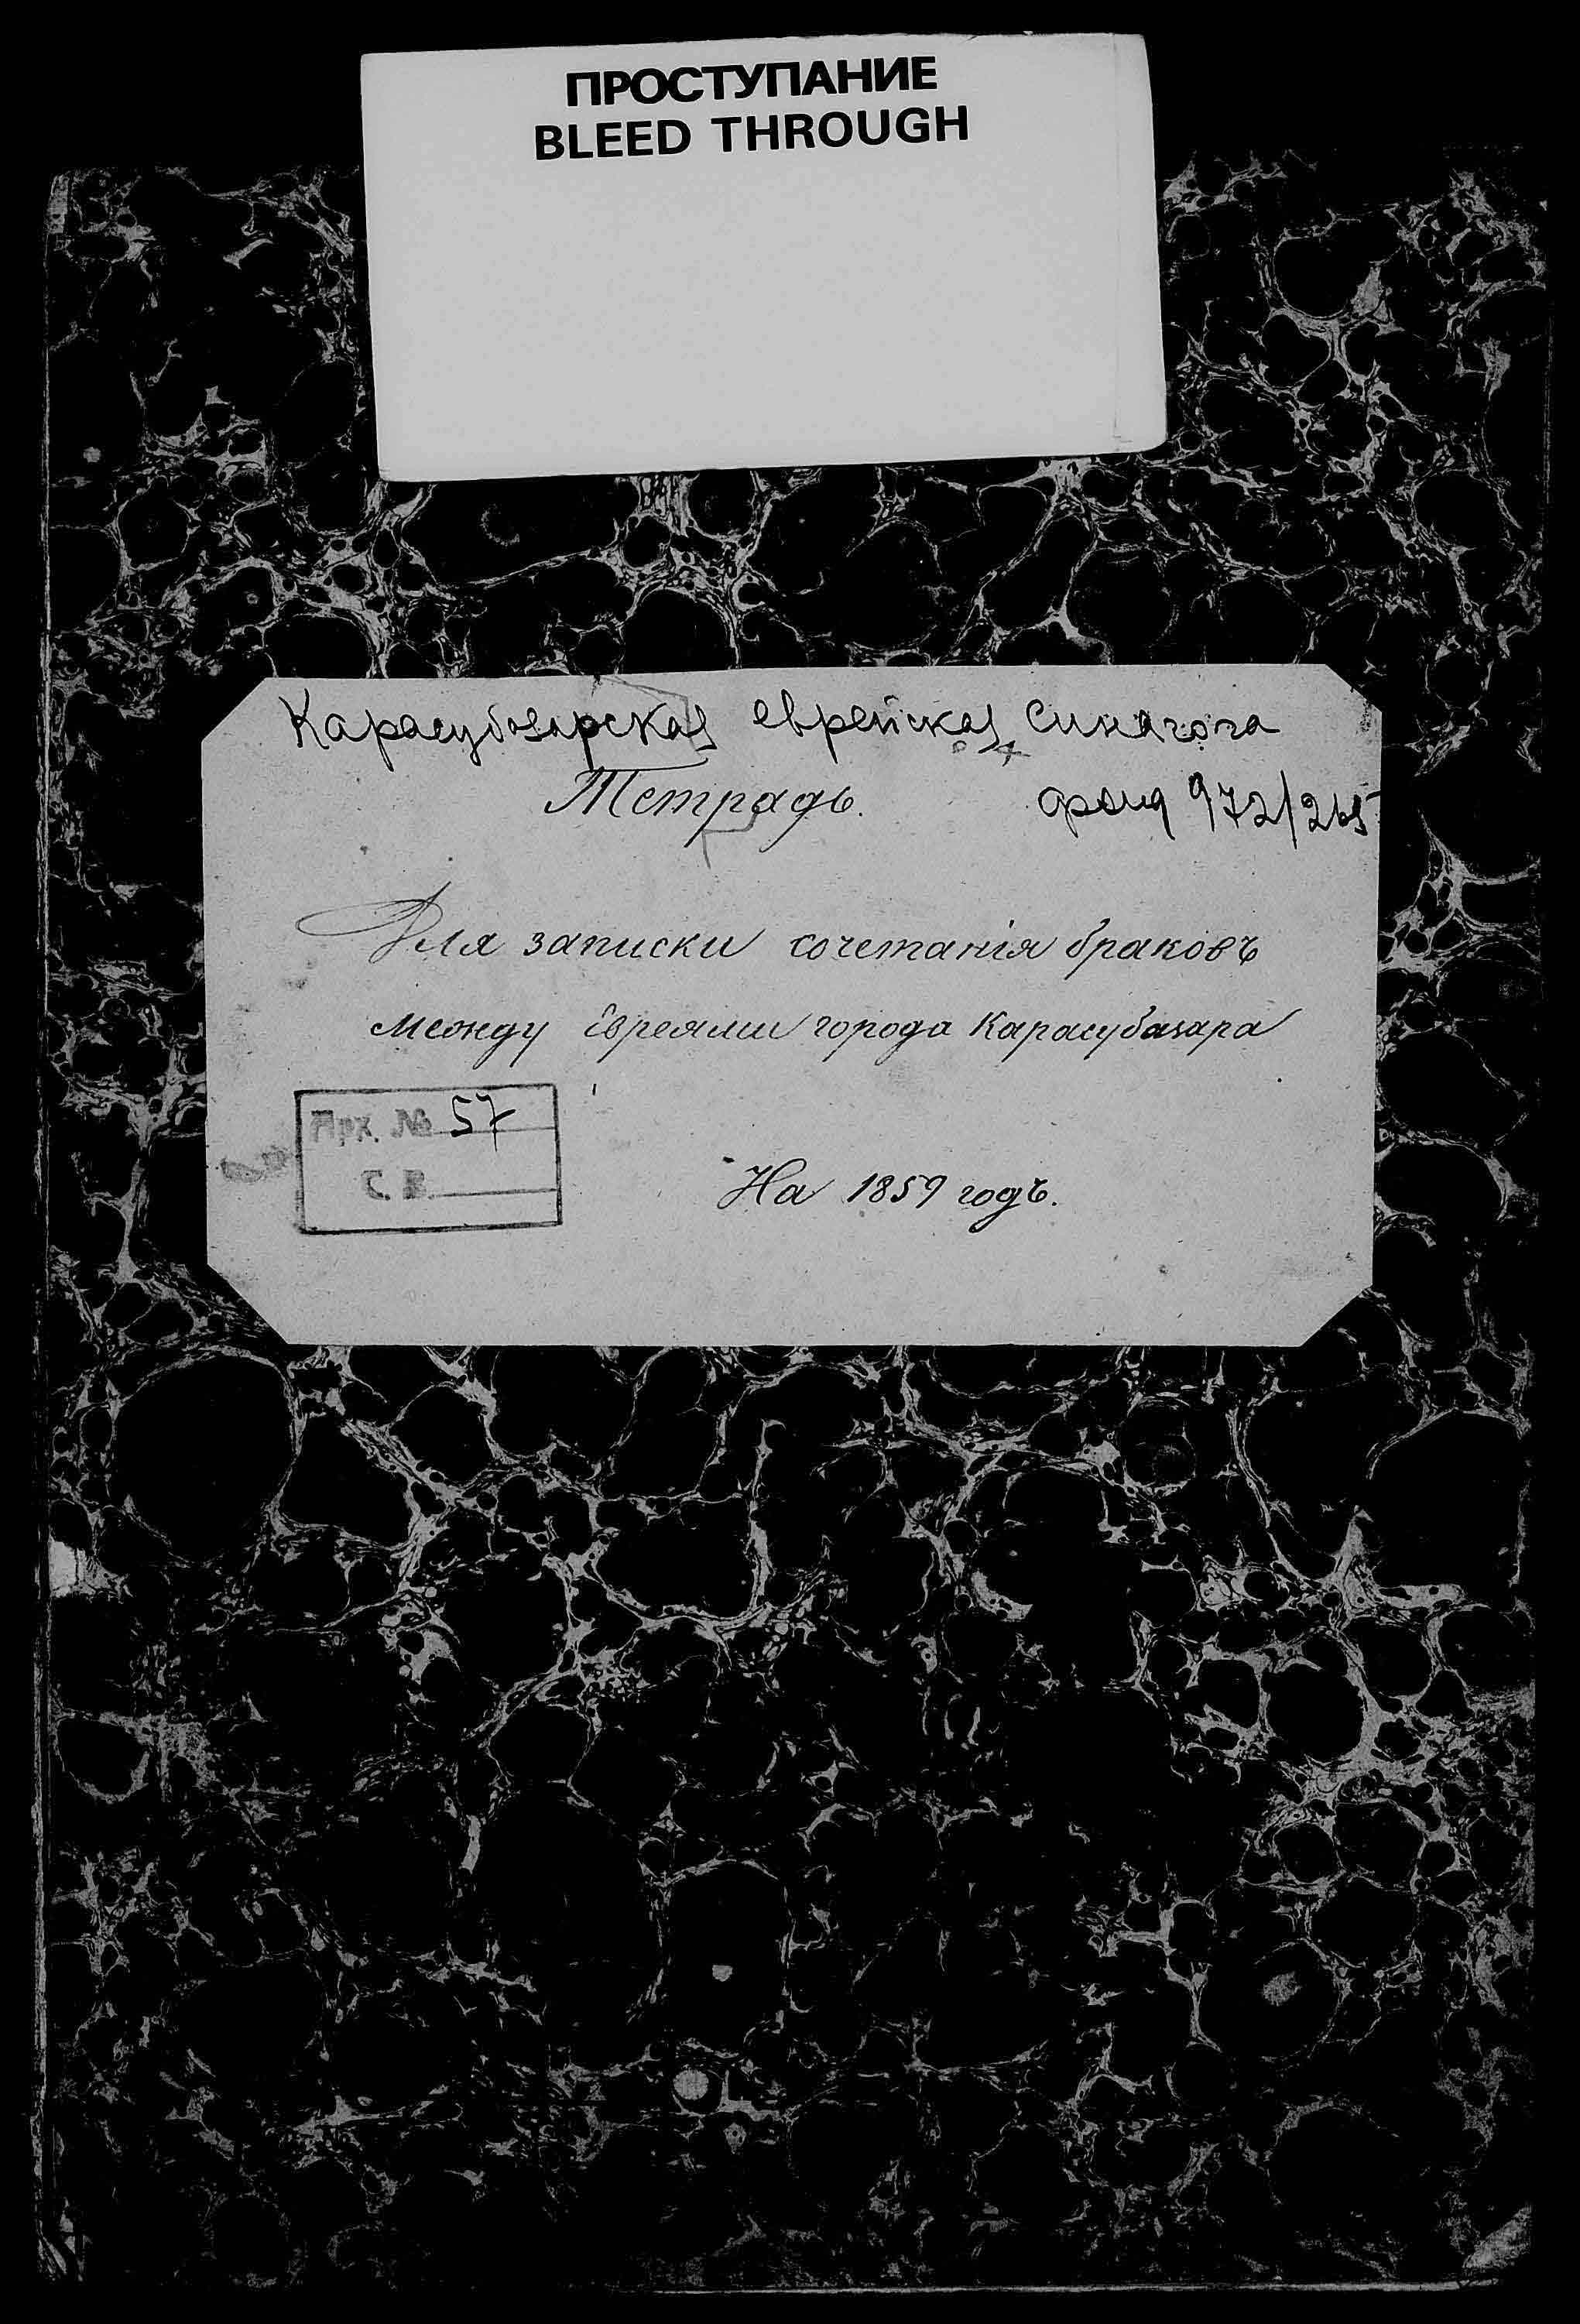 ПРОСТУПАНИЕ
BLEED THROUGH
Карасубазарская еврейская синагога
Тетрадь. фонд 972/265
Для записки сочетанія браковъ
между Евреями города Карасубазара
Арх. № 57
С. В.
На 1859 годъ.